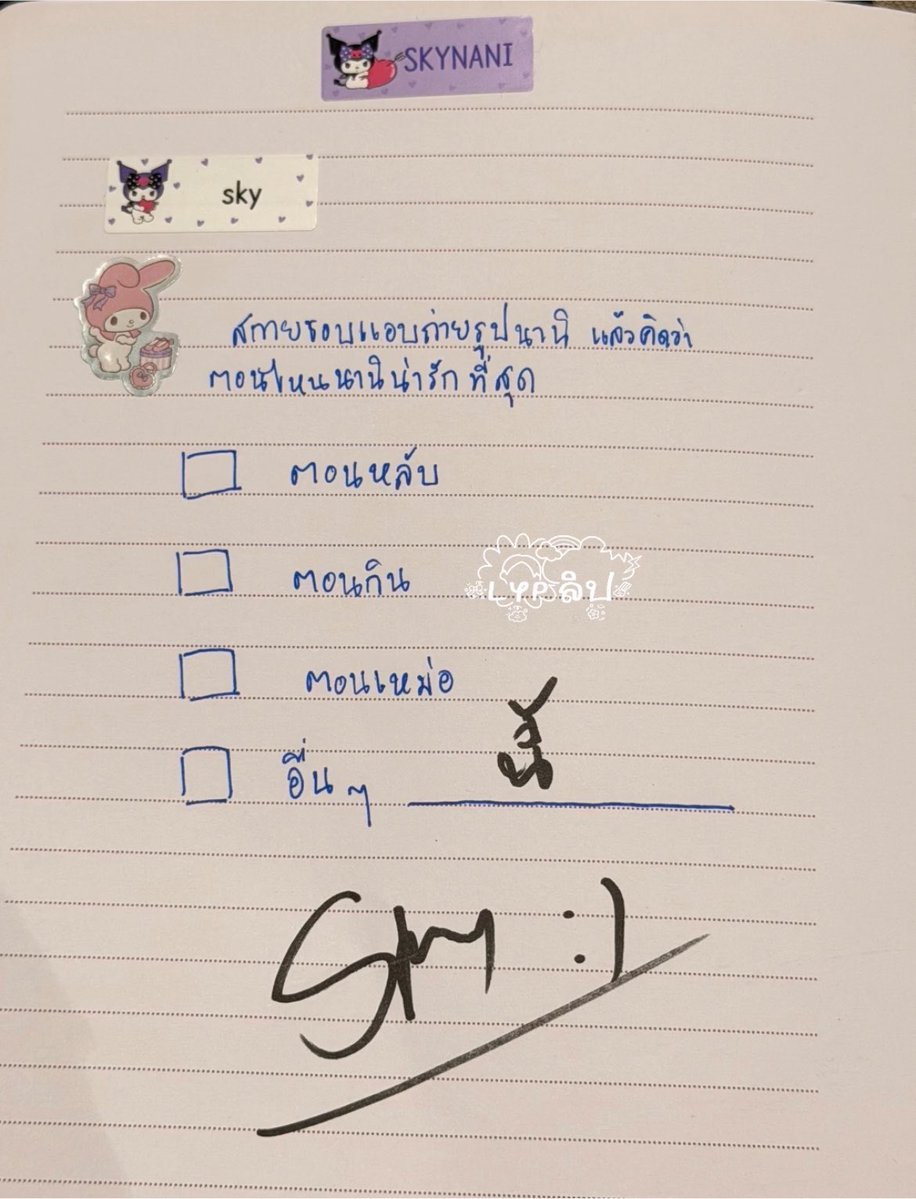 SKYNANI
sky
สกายชอบแอบถ่ายรูปนานิ แล้วคิดว่า
ตอนไหนนานิน่ารักที่สุด
ตอนหลับ
ตอนกิน
LYPลิป
ตอนเหม่อ
อื่นๆ
Sky :)